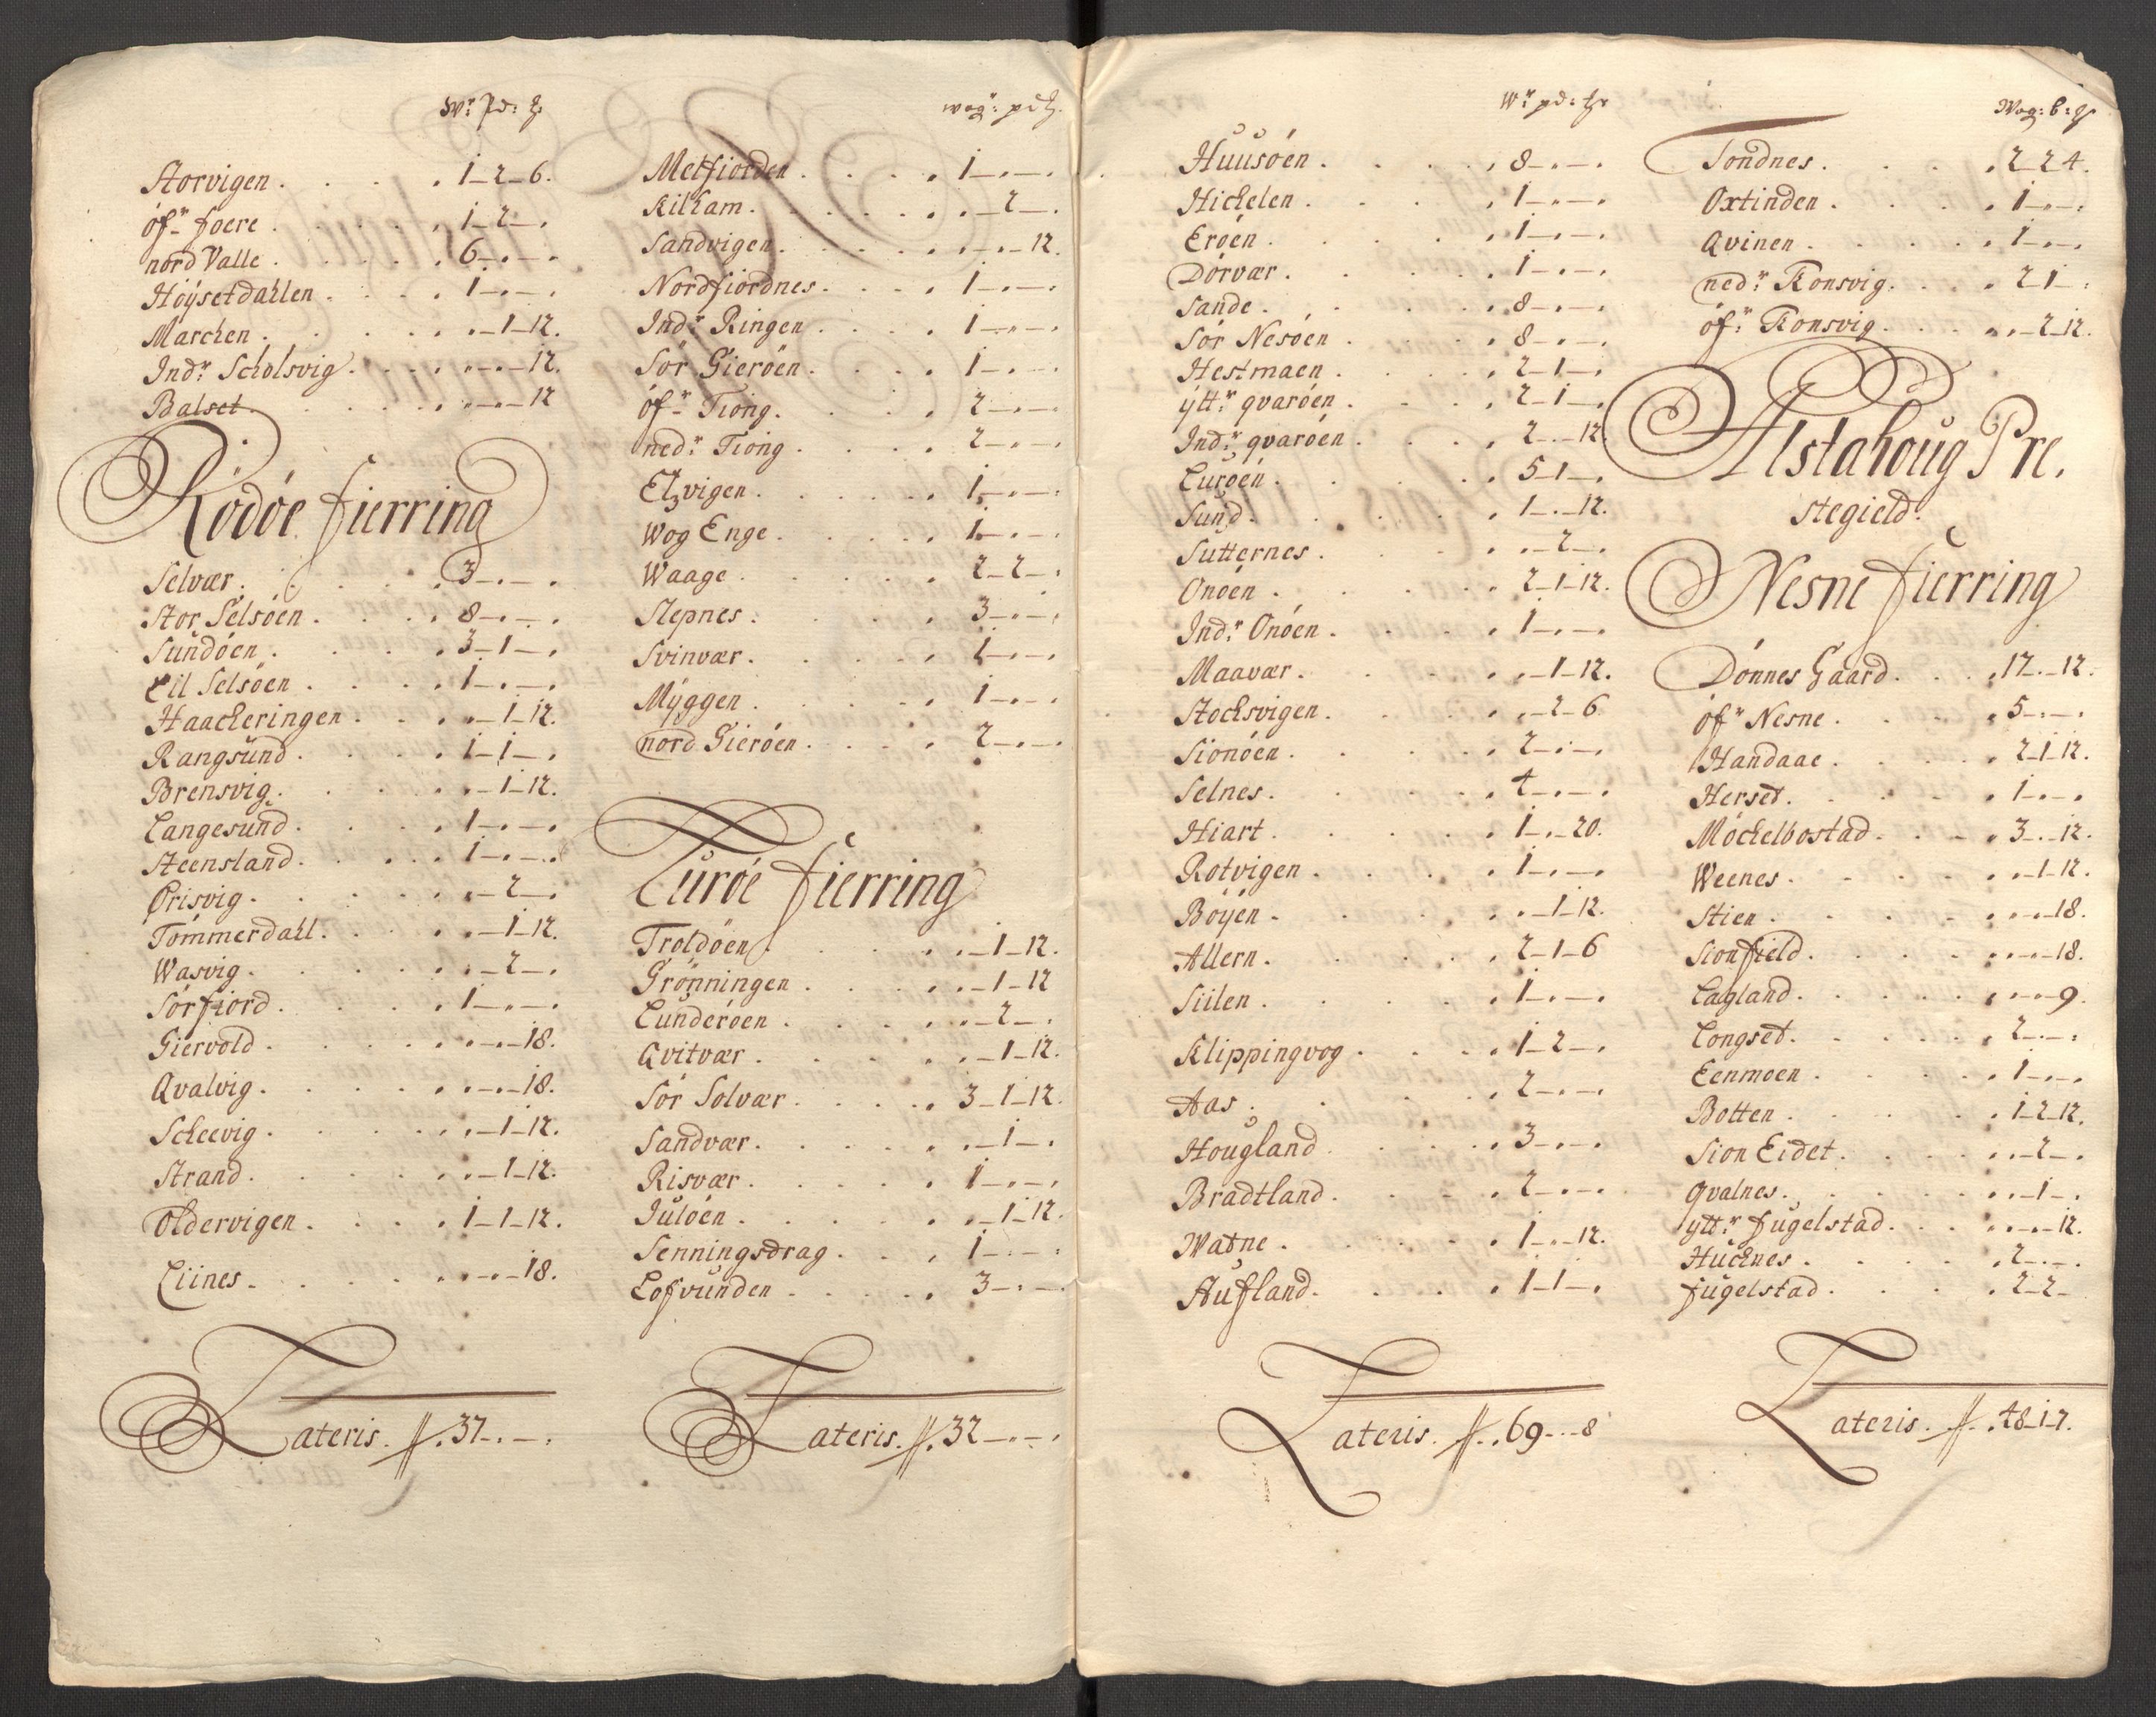 Wr: pd: ℔.
Storvigen . . . . . 1-2-6.
öfr foere . . . . . 1-2-.
nord Valle . . . . . 6-.-.
Höysetdahlen . . . . 1-.-.
Marchen . . . . . .-1-12.
Indr Scholsvig . . . .-.-12.
Balset . . . . . .-.-12
Rödöe fierring
Selvær . . . . . 3-.-.
Stor Selsöen . . . . 8-.-.
Sundöen . . . . . 3-1-.
Lil Selsöen . . . . . 1-.-.
Haacheringen . . . .-1-12.
Rangsund . . . . . 1-1-.
Brensvig . . . . . .-1-12.
Langesund . . . . . 1-.-.
Steensland . . . . . 1-.-.
Ørisvig . . . . . .-2-.
Tömmerdahl . . . . .-1-12.
Wasvig . . . . . .-2-.
Sörfiord . . . . . 1-.-.
Giervold . . . . . .-.-18.
Qvalvig . . . . . .-.-18.
Scheevig . . . . . .-1-12.
Strand . . . . . .-1-12.
Oldervigen . . . . 1-1-12.
Liines . . . . . .-.-18.
Lateris . 37-.-.
wogr: pd ℔.
Melfiorden . . . . . 1-.-.
Kilham . . . . . .-2-.
Sandvigen . . . . . .-.-12.
Nordfiordnes . . . . 1-.-.
Indr Ringen . . . . 1-.-.
Sör Gieröen . . . . 1-.-.
öfr Tiong . . . . . 2-.-.
nedr Tiong . . . . 2-.-.
Elzvigen . . . . . 1-.-.
Wog Enge . . . . . 1-.-.
Waage . . . . . 2-2-.
Slepnes . . . . . 3-.-.
Svinvær . . . . . 1-.-.
Myggen . . . . . 1-.-.
nord Gieröen . . . . 2-.-.
Luröe fierring
Troldöen . . . . . .-1-12.
Grönningen . . . . .-1-12
Lunderöen . . . . . .-2-.
Qvitvær . . . . . .-1-12.
Sör Solvær . . . . . 3-1-12.
Sandvær . . . . . .-1-.
Risvær . . . . . 1-.-.
Julöen . . . . . .-1-12.
Senningsdrag . . . . 1-.-.
Lofvunden . . . . . 3-.-.
Lateris . 32-.-.
Wr pd: ℔
Huusöen . . . . . 8-.-.
Hichelen . . . . . 1-.-.
Eröen . . . . . 1-.-.
Dörvær . . . . . 1-.-.
Sande . . . . . 8-.-.
Sör Nesöen . . . . . 8-.-.
Hestmaen . . . . . 2-1-.
yttr qvaröen . . . . 2-1-.
Indr qvaröen . . . . 2-.-12.
Luröen . . . . . 5-1-.
Sund . . . . . 1-.-12.
Sutternes . . . . . .-2-.
Onöen . . . . . 2-1-12.
Indr Onöen . . . . . 1-.-.
Maavær . . . . . .-1-12.
Stochsvigen . . . . .-2-6
Sionöen . . . . . 2-.-.
Selnes . . . . . 4-.-.
Hiart . . . . . 1-.-20.
Rotvigen . . . . . 1-.-.
Böyen . . . . . .-1-12.
Allern . . . . . 2-1-6
Siilen . . . . . 1-.-.
Klippingvog . . . . 1-2-.
Aas . . . . . 2-.-.
Hougland . . . . . 3-.-.
Bradtland . . . . . 2-.-.
Watne . . . . . 1-.-12.
Aufland . . . . . 1-1-.
Lateris . 69-.-8
Wog: b: ℔
Tondnes . . . . . 2 2 4.
Oxtinden . . . . . 1-.-.
Qvinen . . . . . 1-.-.
nedr Ronsvig . . . . 2 1-.
öfr Ronsvig . . . . .-2-12.
Alstahoug Pre.
stegield.
Nesne fierring
Dönnes Gaard . . . . 17-.-12.
öfr Nesne . . . . . 5-.-.
Handaae . . . . . 2-1-12.
Herset . . . . . 1-.-.
Möchelbostad . . . . 3-.-12.
Weenes . . . . . .-1-12.
Stien . . . . . .-.-18.
Sionfield . . . . . .-.-18.
Lagland . . . . . .-.-9.
Longset . . . . . 2-.-.
Eenmoen . . . . . 1-.-.
Botten . . . . . 1-2-12.
Sion Eidet . . . . . .-2-.
Qvalnes . . . . . .-1-.
yttr fugelstad . . . .-.-12.
Huchnes . . . . . 2-.-.
fugelstad . . . . . 2-2-
Lateris . 48-1-7.